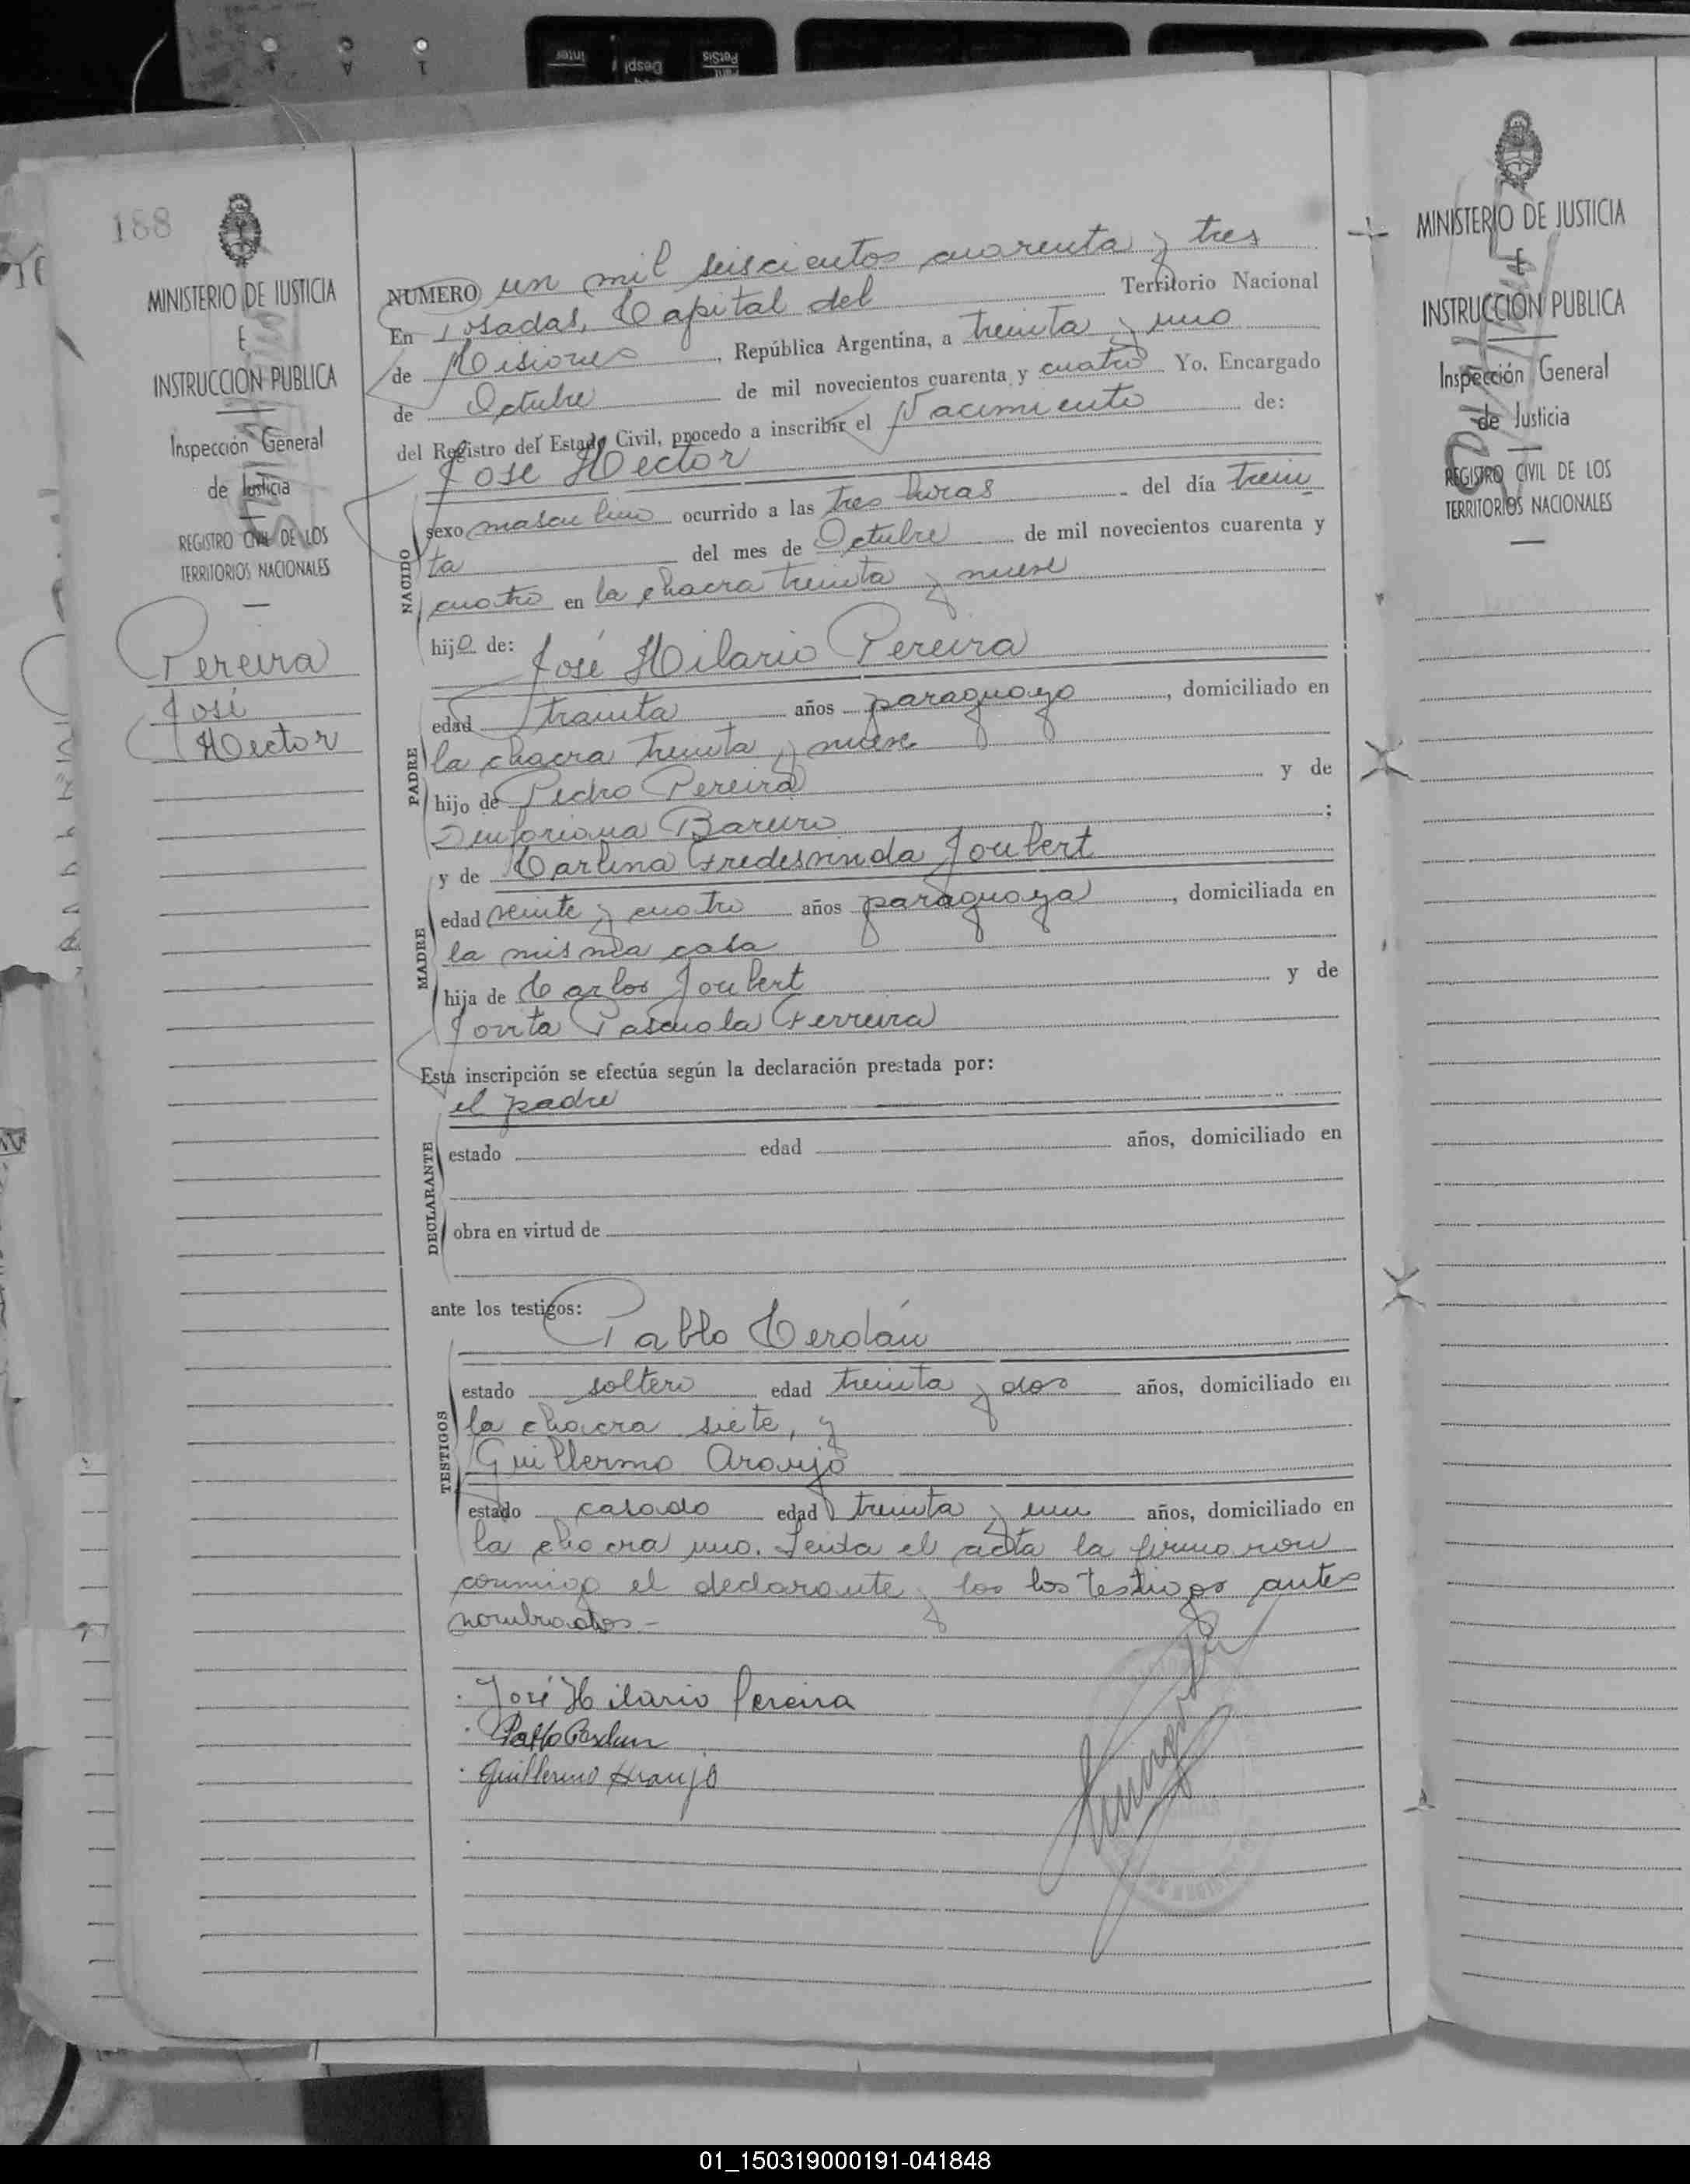 188
MINISTERIO DE JUSTICIA
E
INSTRUCCION PUBLICA
Inspección General
de Justicia
REGISTRO CIVIL DE LOS
TERRITORIOS NACIONALES
Pereira
José
Hector
NUMERO un mil seiscientos cuarenta y tres
En Posadas, Capital del Territorio Nacional
de Misiones, República Argentina, a treinta y uno
de Octubre de mil novecientos cuarenta y cuatro Yo, Encargado
del Registro del Estado Civil, procedo a inscribir el Nacimiento de:
Jose Hector
NACIDO
sexo masculino ocurrido a las tres horas del día trein
ta del mes de Octubre de mil novecientos cuarenta y
cuatro en la chacra treinta y nueve
hijo de: José Hilario Pereira
PADRE
edad trainta años paraguayo, domiciliado en
la chacra treinta y nueve
hijo de Pedro Pereira y de
Sinforiana Bareiro;
y de Carlina Fredesvinda Joubert
MADRE
edad veinte y cuatro años paraguaya, domiciliada en
la misma casa
hija de Carlos Joubert y de
Jovita Pascuala Ferreira
Esta inscripción se efectúa según la declaración prestada por:
el padre
DECLARANTE
estado edad años, domiciliado en
obra en virtud de
ante los testigos:
Pablo Cerdán
TESTIGOS
estado soltero edad treinta y dos años, domiciliado en
la chacra siete, y
Guillermo Araujo
estado casado edad treinta y un años, domiciliado en
la chacra uno. Leida el acta la firmaron
conmigo el declarante y los los testigos antes
nombrados.-
José Hilario Pereira
Pablo Cerdan
Guillermo Araujo
MINISTERIO DE JUSTICIA
E
INSTRUCCION PUBLICA
Inspección General
de Justicia
REGISTRO CIVIL DE LOS
TERRITORIOS NACIONALES
01_150319000191-041848